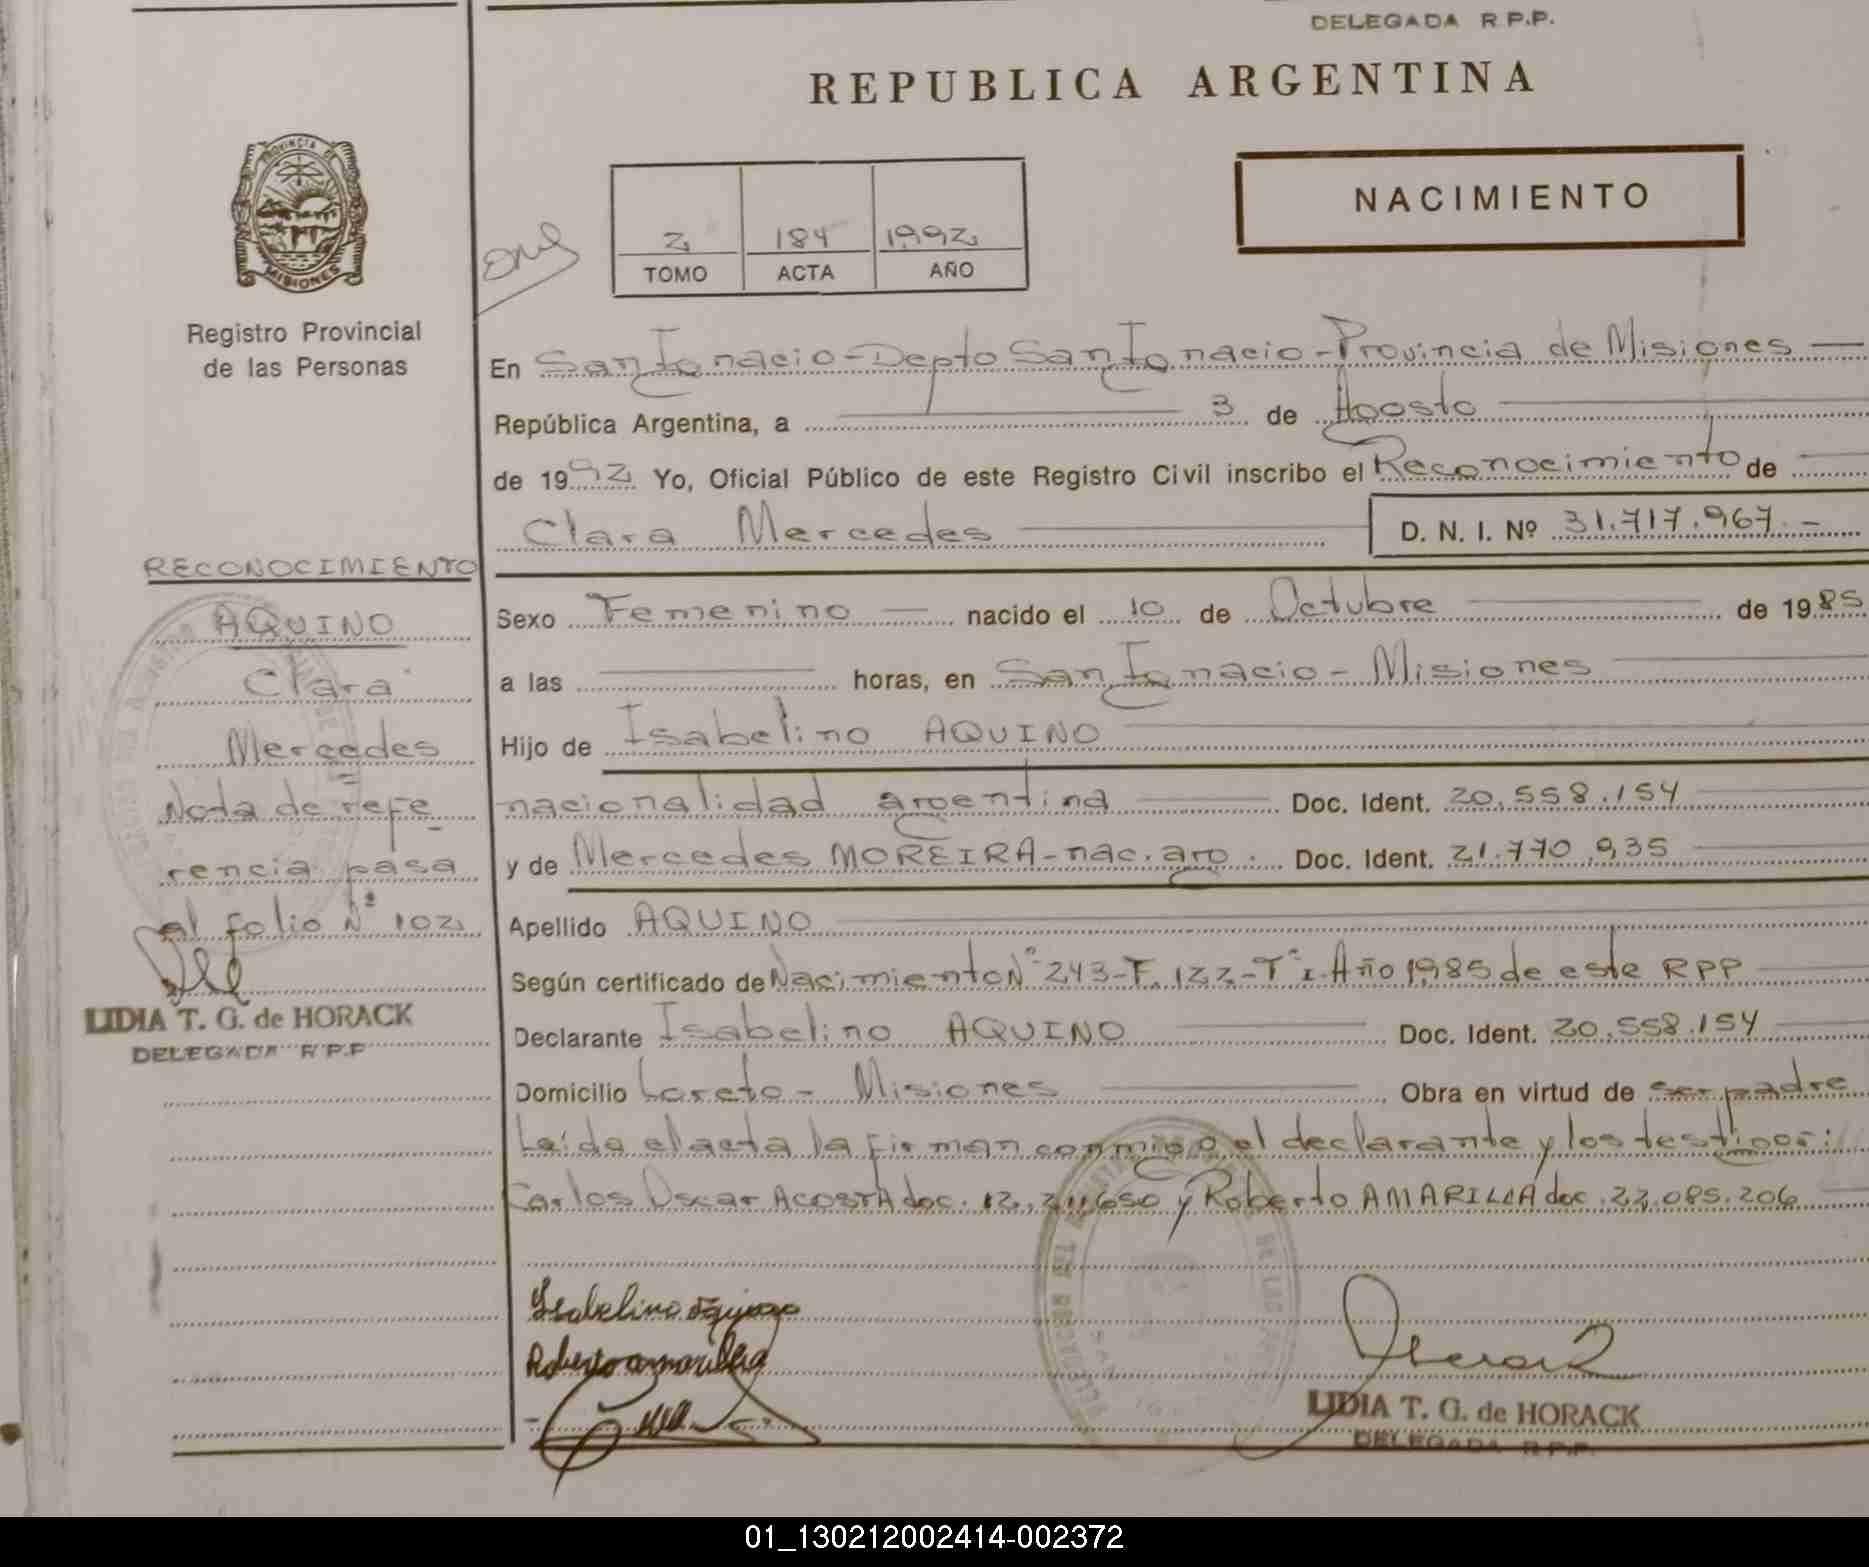 DELEGADA R.P.P.
REPUBLICA ARGENTINA
PROVINCIA DE MISIONES
NACIMIENTO
2 184 1992
TOMO ACTA AÑO
Registro Provincial
de las Personas
En San Ignacio - Depto San Ignacio - Provincia de Misiones —
República Argentina, a 3 de Agosto
de 1992 Yo, Oficial Público de este Registro Civil inscribo el Reconocimiento de
Clara Mercedes D. N. I. Nº 31.717.967.-
RECONOCIMIENTO
AQUINO
Clara
Mercedes
Nota de refe
rencia pasa
al folio Nº 102
LIDIA T. G. de HORACK
DELEGADA R.P.P
Sexo Femenino — nacido el 10 de Octubre de 1985
a las horas, en San Ignacio - Misiones
Hijo de Isabelino AQUINO
nacionalidad argentina Doc. Ident. 20.558.154
y de Mercedes MOREIRA - nac. arg. Doc. Ident. 21.770.935
Apellido AQUINO
Según certificado de Nacimiento Nº 243-F. 122-Tº I. Año 1985 de este RPP
Declarante Isabelino AQUINO Doc. Ident. 20.558.154
Domicilio Loreto - Misiones Obra en virtud de ser padre
Leída el acta la firman conmigo el declarante y los testigos:
Carlos Oscar ACOSTA doc. 12.211.650 y Roberto AMARILLA doc. 22.085.206
Isabelino Aquino
Roberto amarilla
LIDIA T. G. de HORACK
DELEGADA R.P.P.
01_130212002414-002372